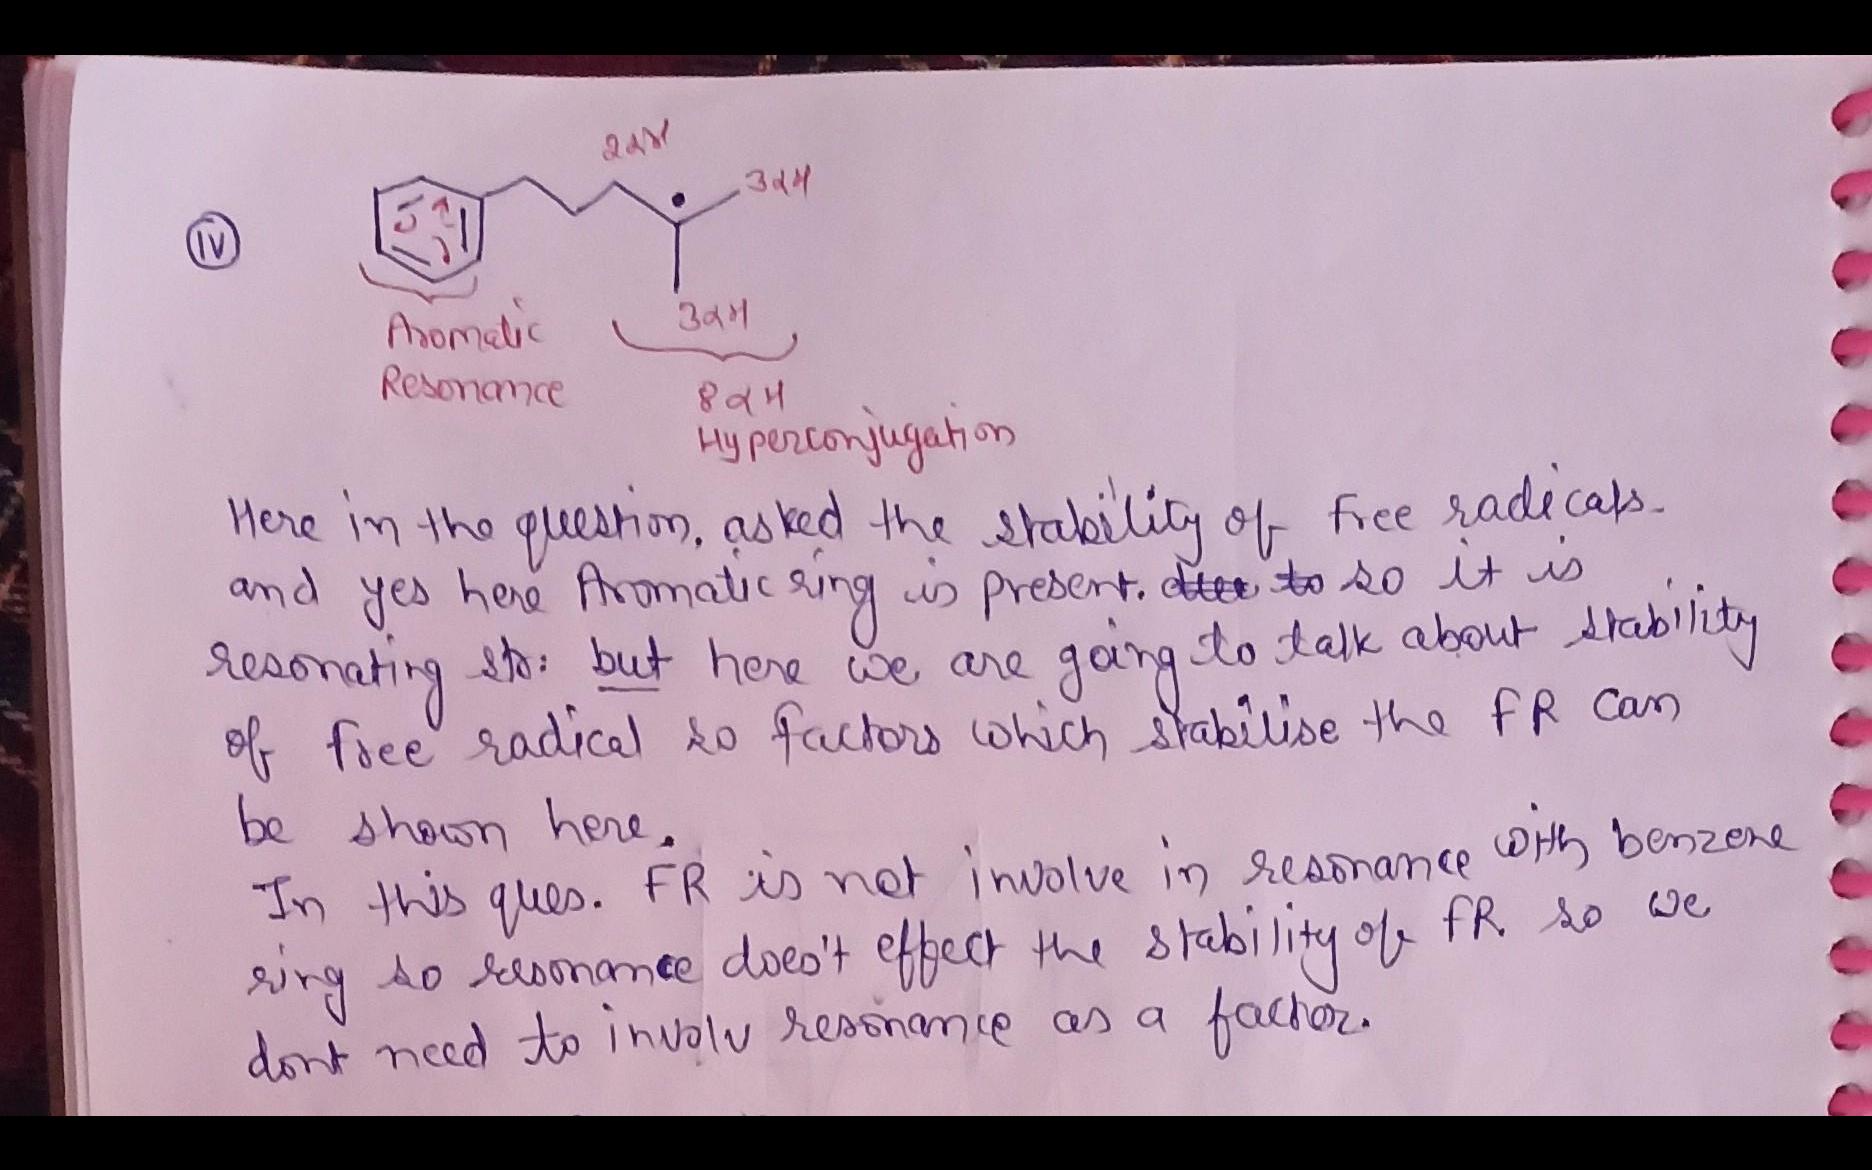 2αH
3αH
IV
3αH
Aromatic
Resonance
8αH
Hyperconjugation
Here in the question, asked the stability of free radicals.
and yes here Aromatic ring is present. to so it is
resonating str: but here we are going to talk about stability
of free radical so factors which stabilise the FR can
be shown here.
In this ques. FR is not involve in resonance with benzene
ring so resonance does't effect the stability of FR so we
dont need to involv resonance as a factor.